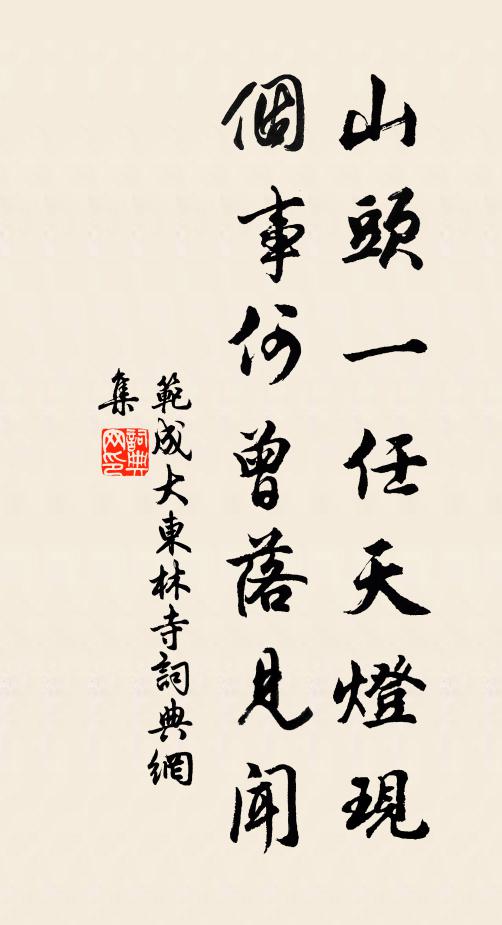 山頭一任天燈現
個事何曾落見聞
範成大東林寺詞典網
集
詞典
网印